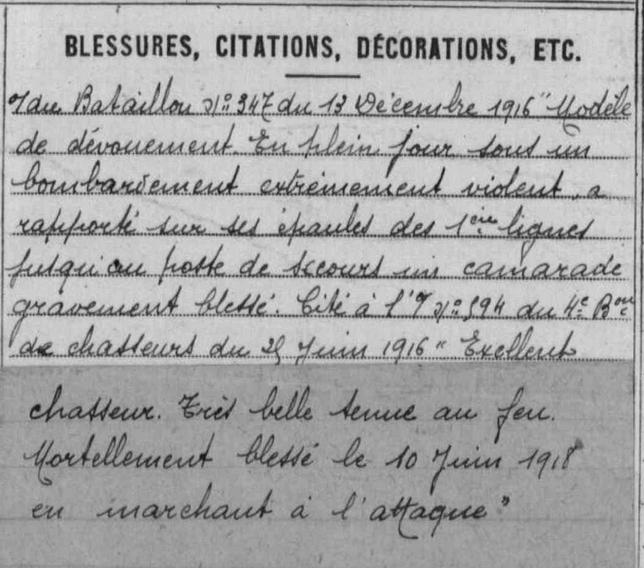 BLESSURES, CITATIONS, DÉCORATIONS, ETC.
du Bataillon No 347 du 13 Décembre 1916 "Modèle
de dévouement. En plein jour sous un
bombardement extrêmement violent, a
rapporté sur ses épaules des 1ère lignes
jusqu'au poste de secours un camarade
gravement blessé. Cité à l'O No 594 du 4e Bon
de chasseurs du 25 Juin 1916 " Excellent
chasseur. Très belle tenue au feu.
Mortellement blessé le 10 Juin 1918
en marchant à l'attaque"